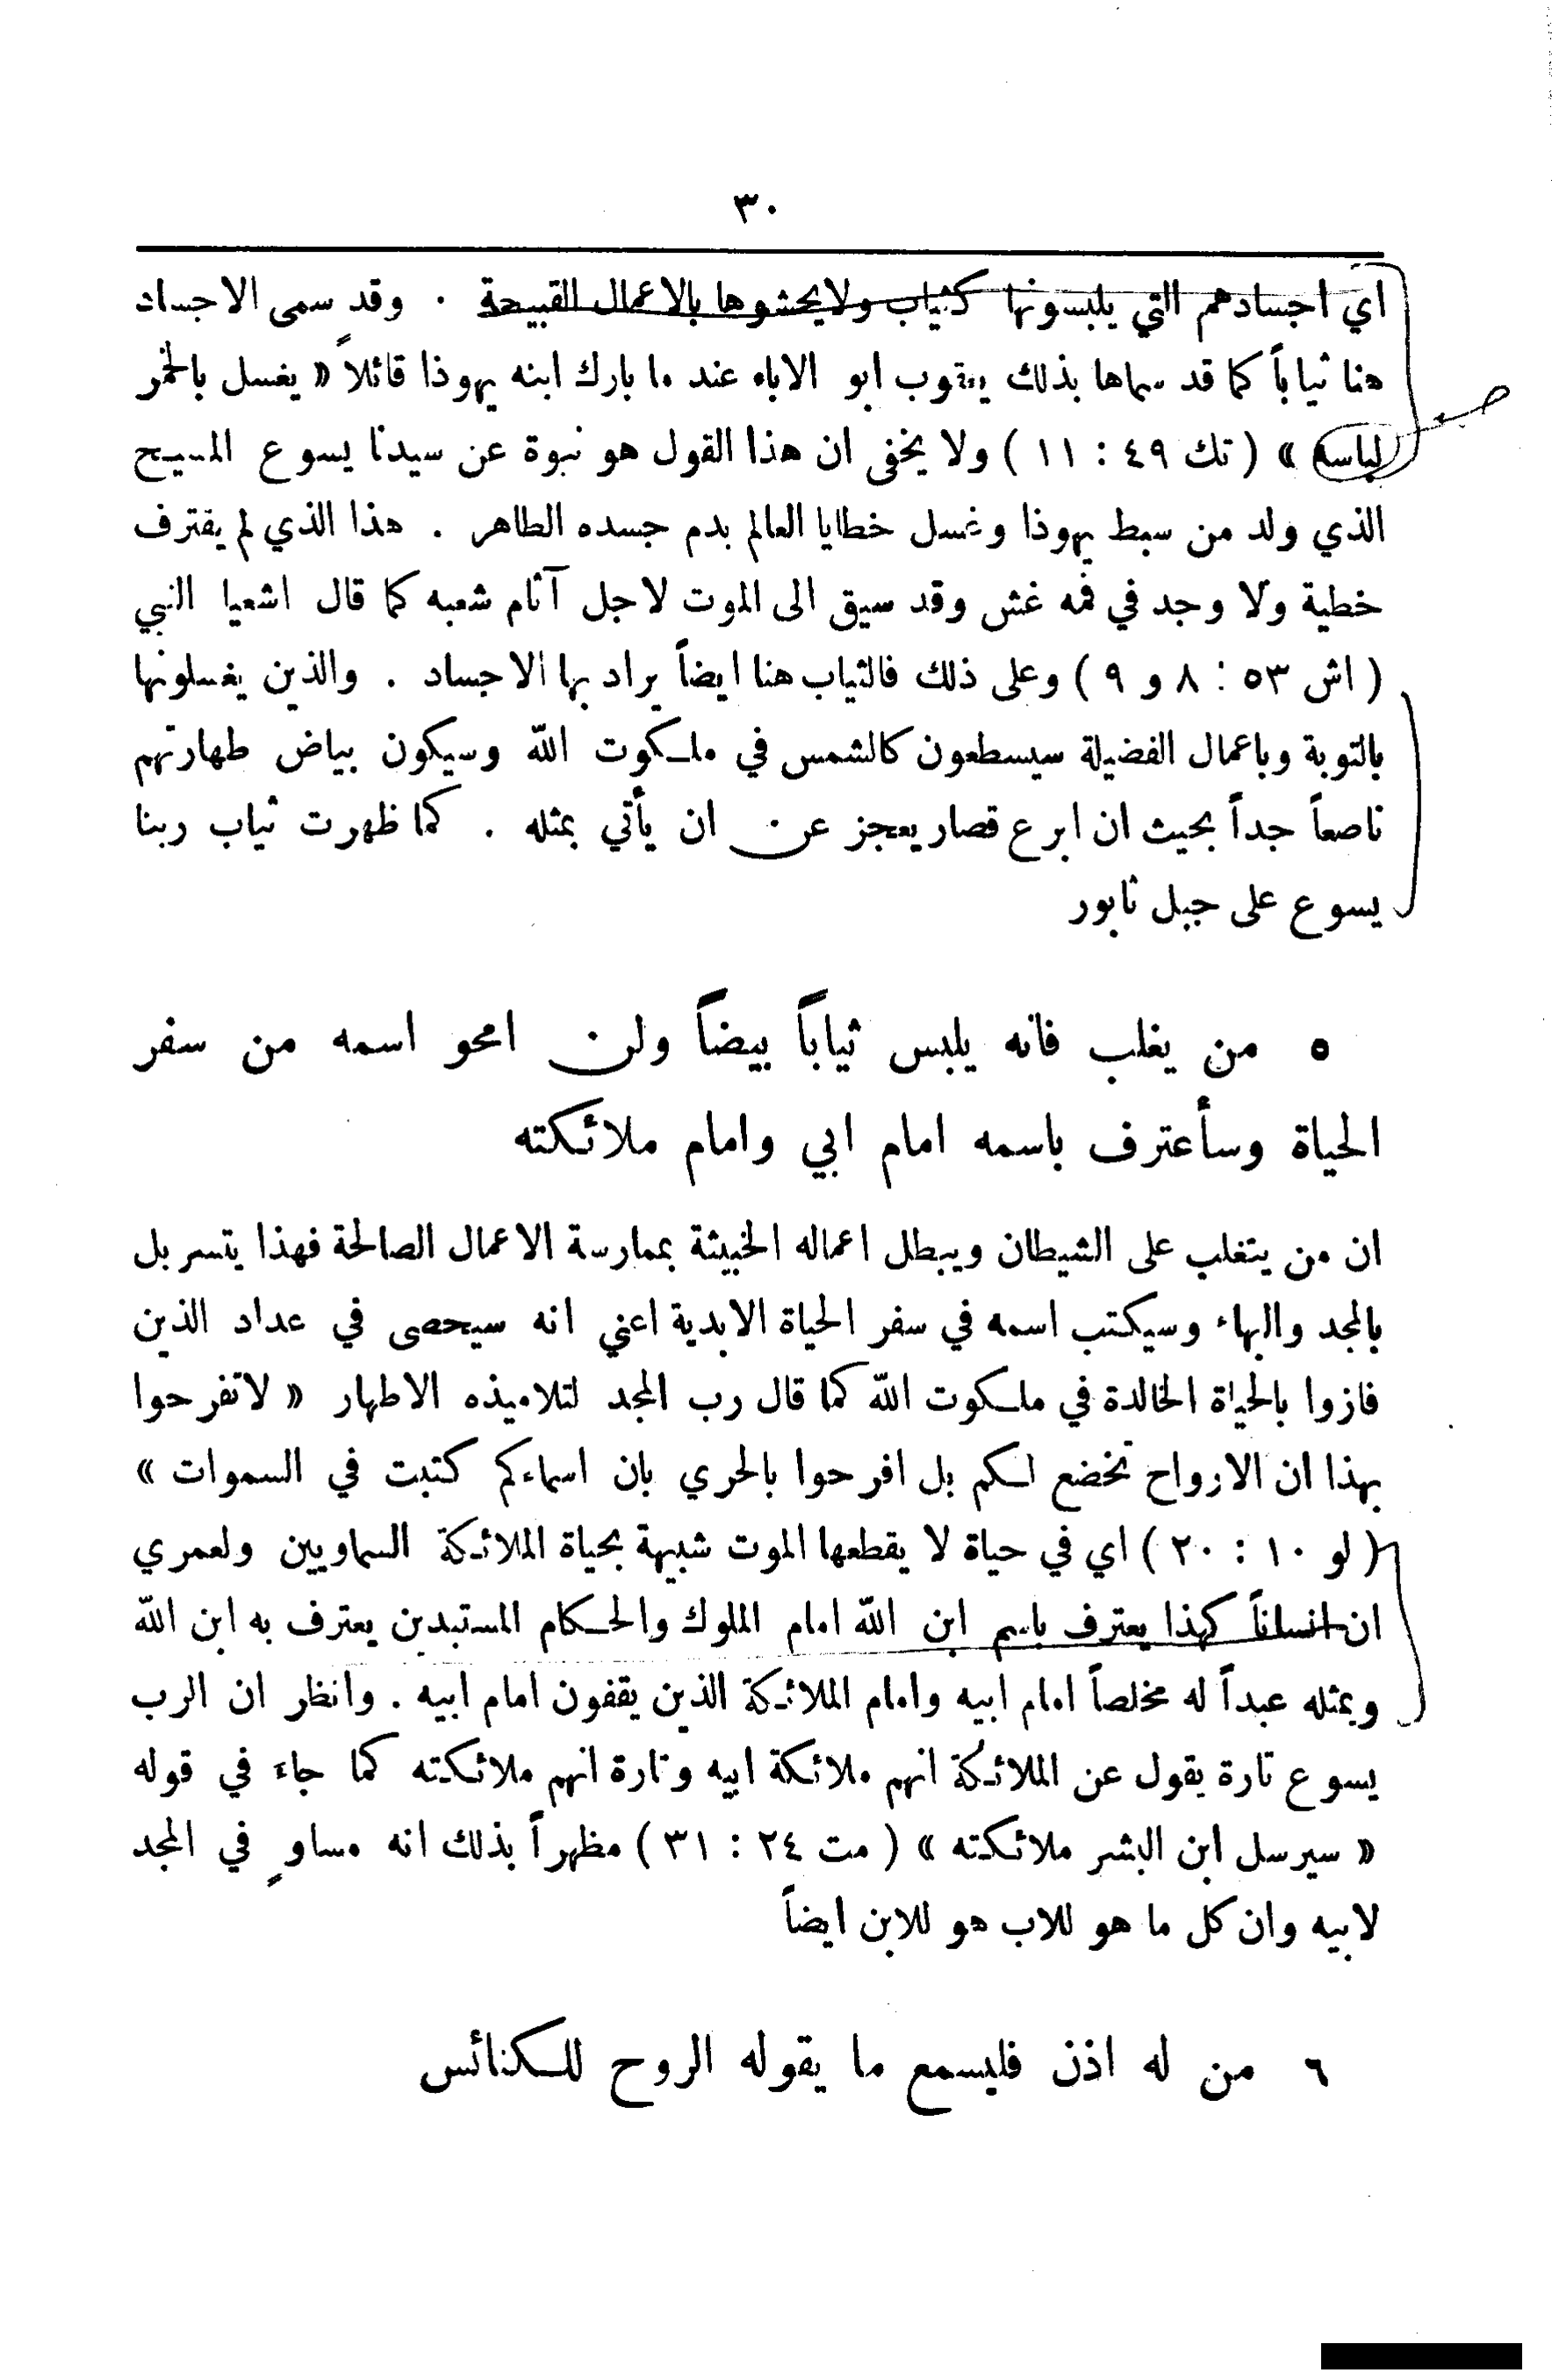 ٣٠
اي اجسادهم التي يلبسونها كثياب ولا يحشوها بالاعمال القبيحة . وقد سمى الاجساد
هنا ثياباً كما قد سماها بذلك يعقوب ابو الاباء عند ما بارك ابنه يهوذا قائلاً « يغسل بالخمر
لباسه » ( تك ٤٩ : ١١ ) ولا يخفى ان هذا القول هو نبوة عن سيدنا يسوع المسيح
الذي ولد من سبط يهوذا وغسل خطايا العالم بدم جسده الطاهر . هذا الذي لم يقترف
خطية ولا وجد في فمه غش وقد سيق الى الموت لاجل آثام شعبه كما قال اشعيا النبي
( اش ٥٣ : ٨ و ٩ ) وعلى ذلك فالثياب هنا ايضاً يراد بها الاجساد . والذين يغسلونها
بالتوبة وباعمال الفضيلة سيسطعون كالشمس في ملكوت الله وسيكون بياض طهارتهم
ناصعاً جداً بحيث ان ابرع قصار يعجز عن ان يأتي بمثله . كما ظهرت ثياب ربنا
يسوع على جبل ثابور
٥ من يغلب فانه يلبس ثياباً بيضاً ولن امحو اسمه من سفر
الحياة وسأعترف باسمه امام ابي وامام ملائكته
ان من يتغلب على الشيطان ويبطل اعماله الخبيثة بممارسة الاعمال الصالحة فهذا يتسربل
بالمجد والبهاء وسيكتب اسمه في سفر الحياة الابدية اعني انه سيحصى في عداد الذين
فازوا بالحياة الخالدة في ملكوت الله كما قال رب المجد لتلاميذه الاطهار « لا تفرحوا
بهذا ان الارواح تخضع لكم بل افرحوا بالحري بان اسماءكم كتبت في السموات »
( لو ١٠ : ٢٠ ) اي في حياة لا يقطعها الموت شبيهة بحياة الملائكة السماويين ولعمري
ان انساناً كهذا يعترف باسم ابن الله امام الملوك والحكام المستبدين يعترف به ابن الله
وبمثله عبداً له مخلصاً امام ابيه وامام الملائكة الذين يقفون امام ابيه . وانظر ان الرب
يسوع تارة يقول عن الملائكة انهم ملائكة ابيه وتارة انهم ملائكته كما جاء في قوله
« سيرسل ابن البشر ملائكته » ( مت ٢٤ : ٣١ ) مظهراً بذلك انه مساوٍ في المجد
لابيه وان كل ما هو للاب هو للابن ايضاً
٦ من له اذن فليسمع ما يقوله الروح للكنائس